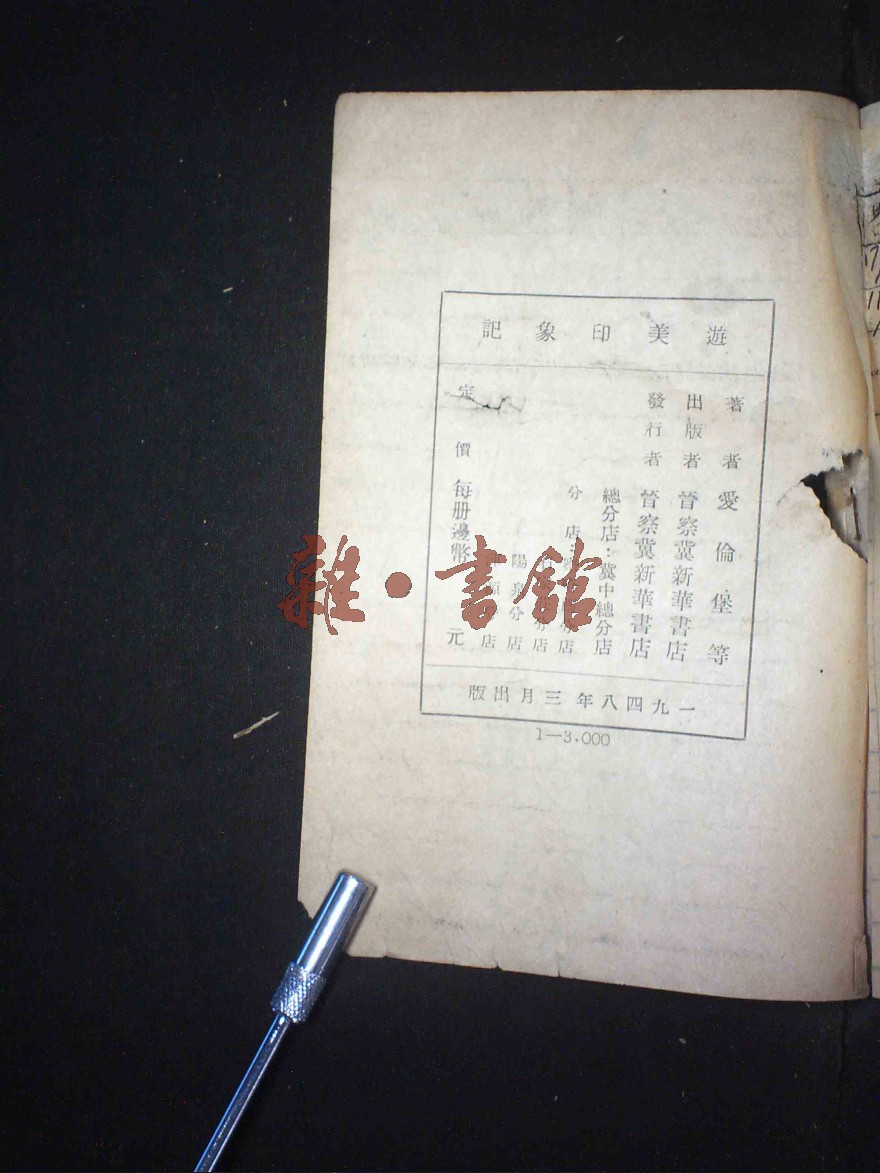 遊美印象記
著者 愛倫堡等
出版者 晉察冀新華書店
發行者 晉察冀新華書店
總分店：冀中總分店
分店
陽泉分店
店
定價 每册邊幣 元
一九四八年三月出版
1—3.000
雜·書館